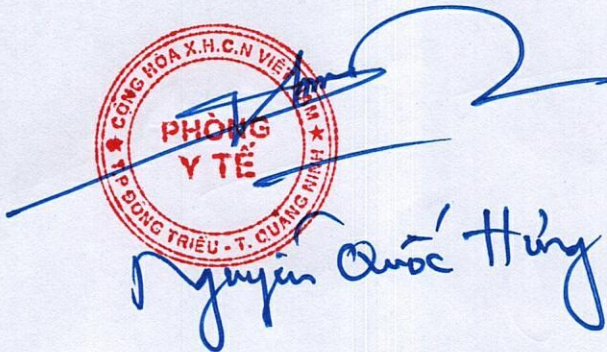 CỘNG HÒA X.H.C.N VIỆT NAM
PHÒNG
Y TẾ
★ TP ĐÔNG TRIỀU - T. QUẢNG NINH ★
Nguyễn Quốc Hưng